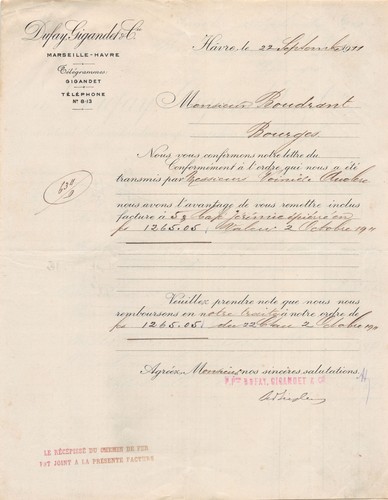 Dufay, Gigandet & Cie
MARSEILLE-HAVRE
Télégrammes:
GIGANDET
TÉLÉPHONE
N° 8-13
Hâvre, le 22 Septembre 1911
Monsieur Boudrant
Bourges
Nous vous confirmons notre lettre du
Conformément à l'ordre, qui nous a été
transmis par Messieurs
nous avons l'avantage de vous remettre inclus
facture à 58
fs 1265.05; Valeur 2 Octobre 1911
Veuillez prendre note que nous nous
remboursons en notre traite à notre ordre de
fs 1265.05, du 22 au 2 Octobre 1911
Agréez, Monsieur nos sincères salutations.
DUFAY, GIGANDET & Cie
LE RÉCÉPISSÉ DU CHEMIN DE FER
EST JOINT A LA PRÉSENTE FACTURE